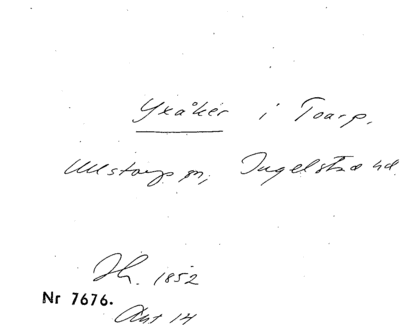 Yxåker i Toarp,
Ullstorps sn, Ingelstad hd.
Jh. 1852
Nr 7676.
Akt 14